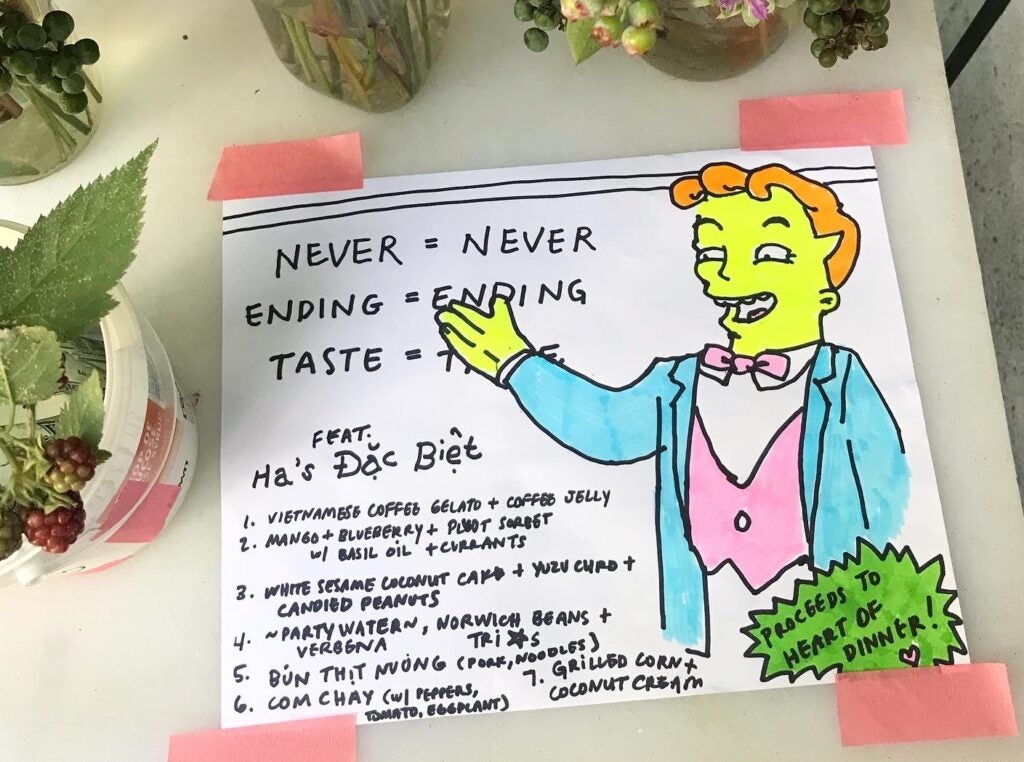 NEVER = NEVER
ENDING = ENDING
TASTE =
FEAT.
Ha's Đặc Biệt
1. VIETNAMESE COFFEE GELATO + COFFEE JELLY
2. MANGO + BLUEBERRY + PLUOT SORBET
W/ BASIL OIL + CURRANTS
3. WHITE SESAME COCONUT CAKE + YUZU CURD +
CANDIED PEANUTS
4. ~PARTY WATER~, NORWICH BEANS +
VERBENA
5. BÚN THỊT NUÒNG (PORK, NOODLES)
6. COM CHAY (W/ PEPPERS,
TOMATO, EGGPLANT)
7. GRILLED CORN +
COCONUT CREAM
PROCEEDS TO
HEART OF
DINNER!